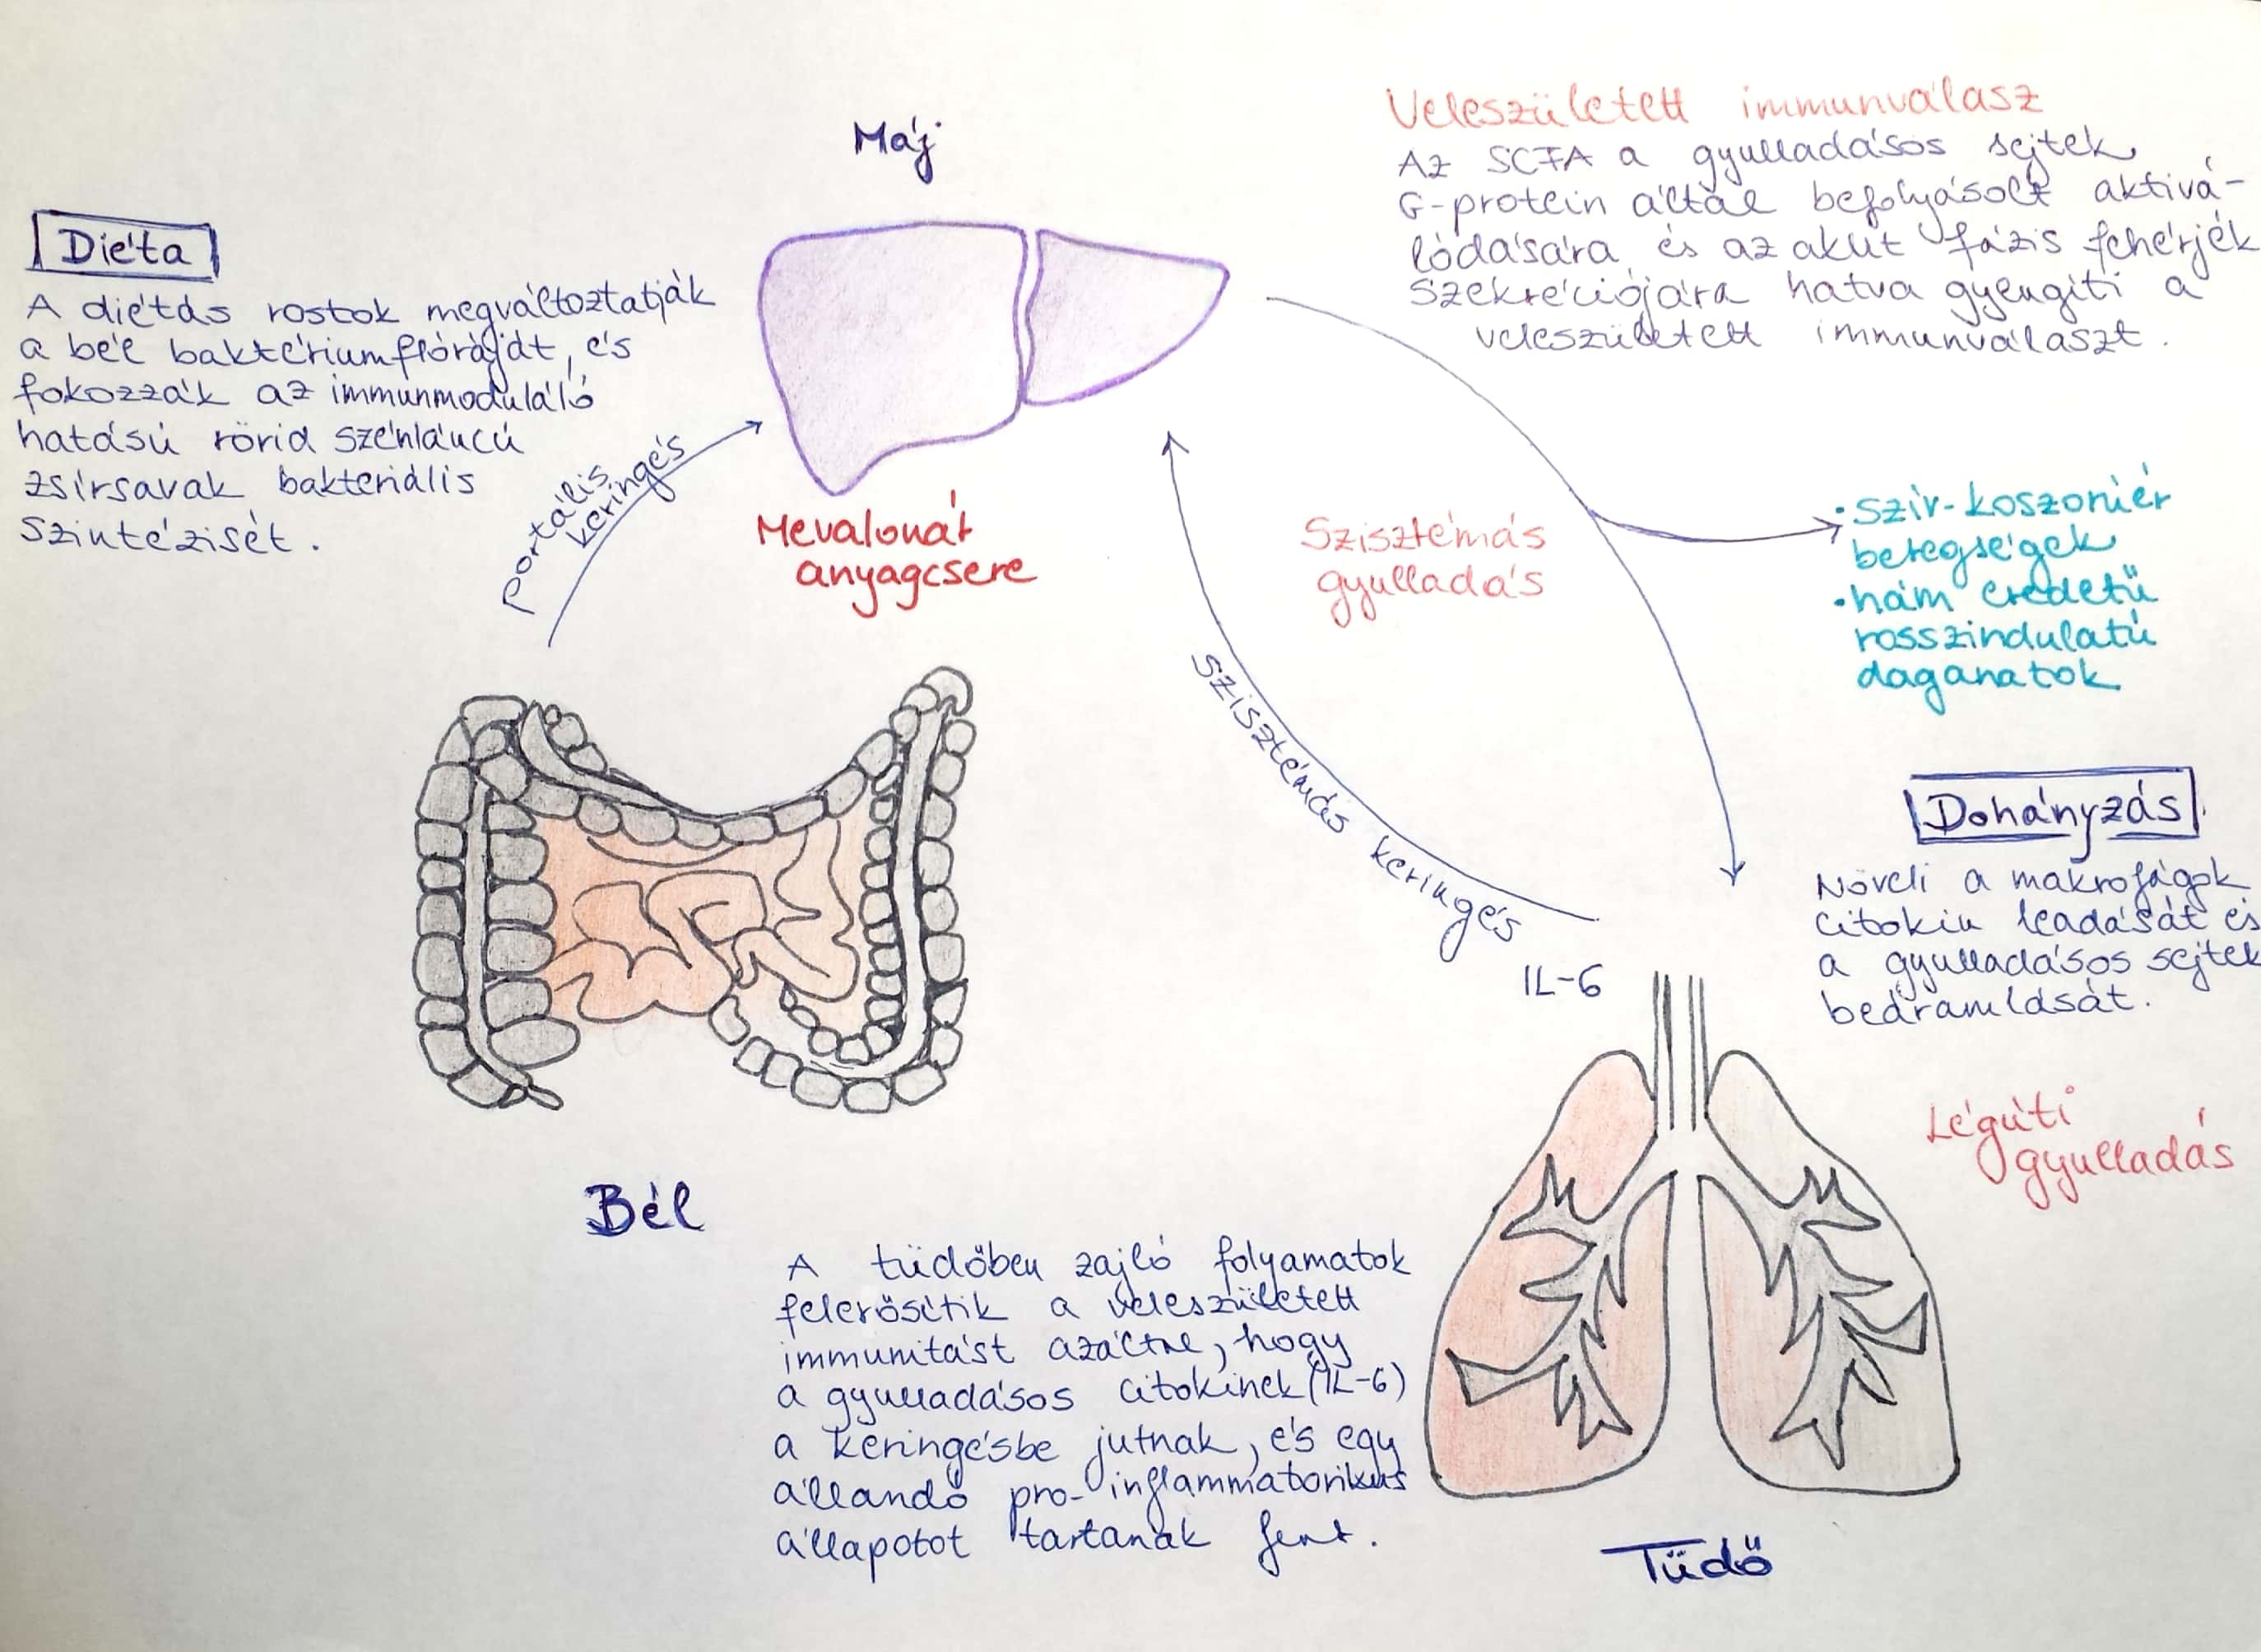 Máj
Veleszületett immunválasz
Az SCFA a gyulladásos sejtek
G-protein által befolyásolt aktivá-
lódására és az akut fázis fehérjék
szekréciójára hatva gyengíti a
veleszületett immunválaszt.
Diéta
A diétás rostok megváltoztatják
a bél baktériumflóráját, és
fokozzák az immunmoduláló
hatású rövid szénláncú
zsírsavak bakteriális
szintézisét.
portális
keringés
Mevalonát
anyagcsere
Szisztémás
gyulladás
• szív-koszorúér
betegségek
• hám eredetű
rosszindulatú
daganatok
szisztémás keringés
IL-6
Dohányzás
Növeli a makrofágok
citokin leadását és
a gyulladásos sejtek
beáramlását.
Légúti
gyulladás
Bél
A tüdőben zajló folyamatok
felerősítik a veleszületett
immunitást azáltal, hogy
a gyulladásos citokinek (IL-6)
a keringésbe jutnak, és egy
állandó pro-inflammatorikus
állapotot tartanak fent.
Tüdő